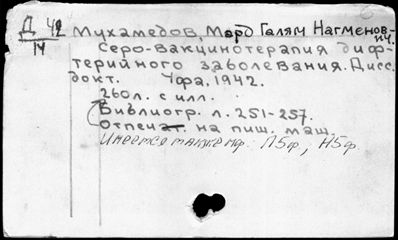 Д 42
14
Мухамедов, Мард Галям Нагменов-
ич.
Серо-вакцинотерапия диф-
терийного заболевания. Дисс.
докт. Уфа, 1942.
260 л. с илл.
Библиогр. л. 251-257.
Отпечат. на пиш. маш.
Имеется также мф. Л5ф, Н5ф.